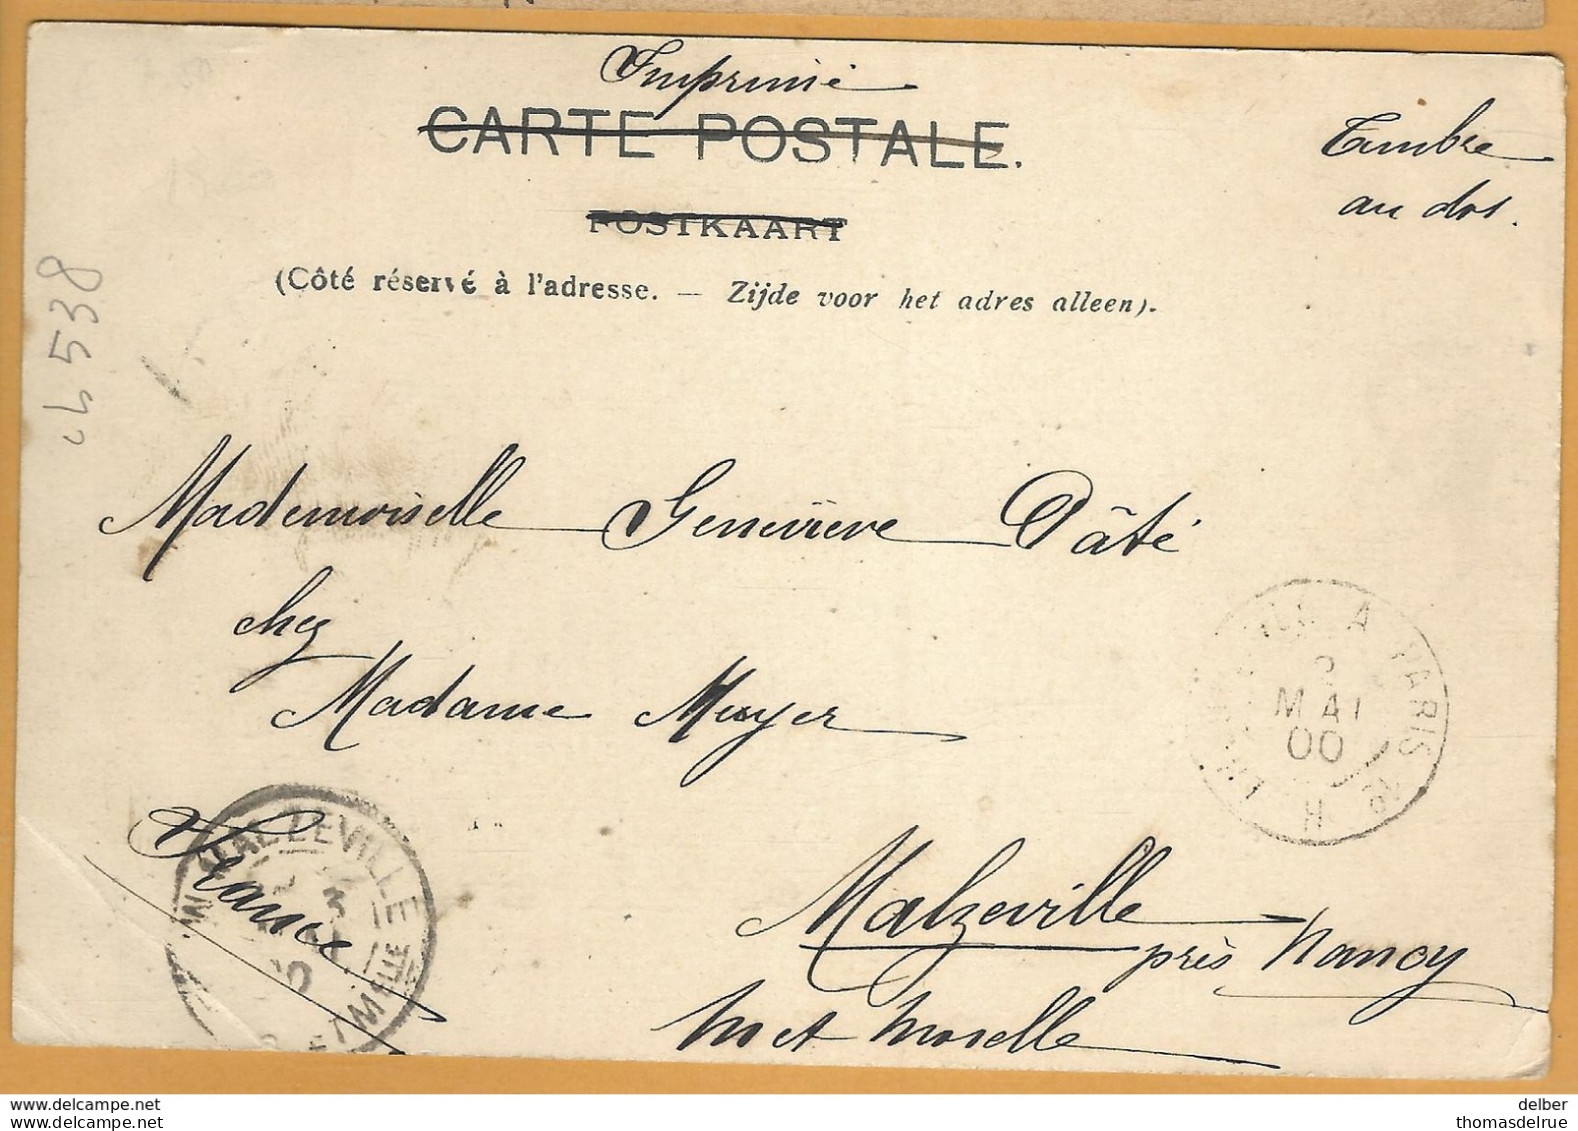 Imprimé
CARTE POSTALE.
Timbre
au dos.
POSTKAART
(Côté réservé à l'adresse. — Zijde voor het adres alleen).
538
Mademoiselle Geneviève Pâté
chez
Madame Meyer
A PARIS
MAI
00
France
MALZEVILLE
Malzeville
près Nancy
M et Moselle
delber
thomasdelrue